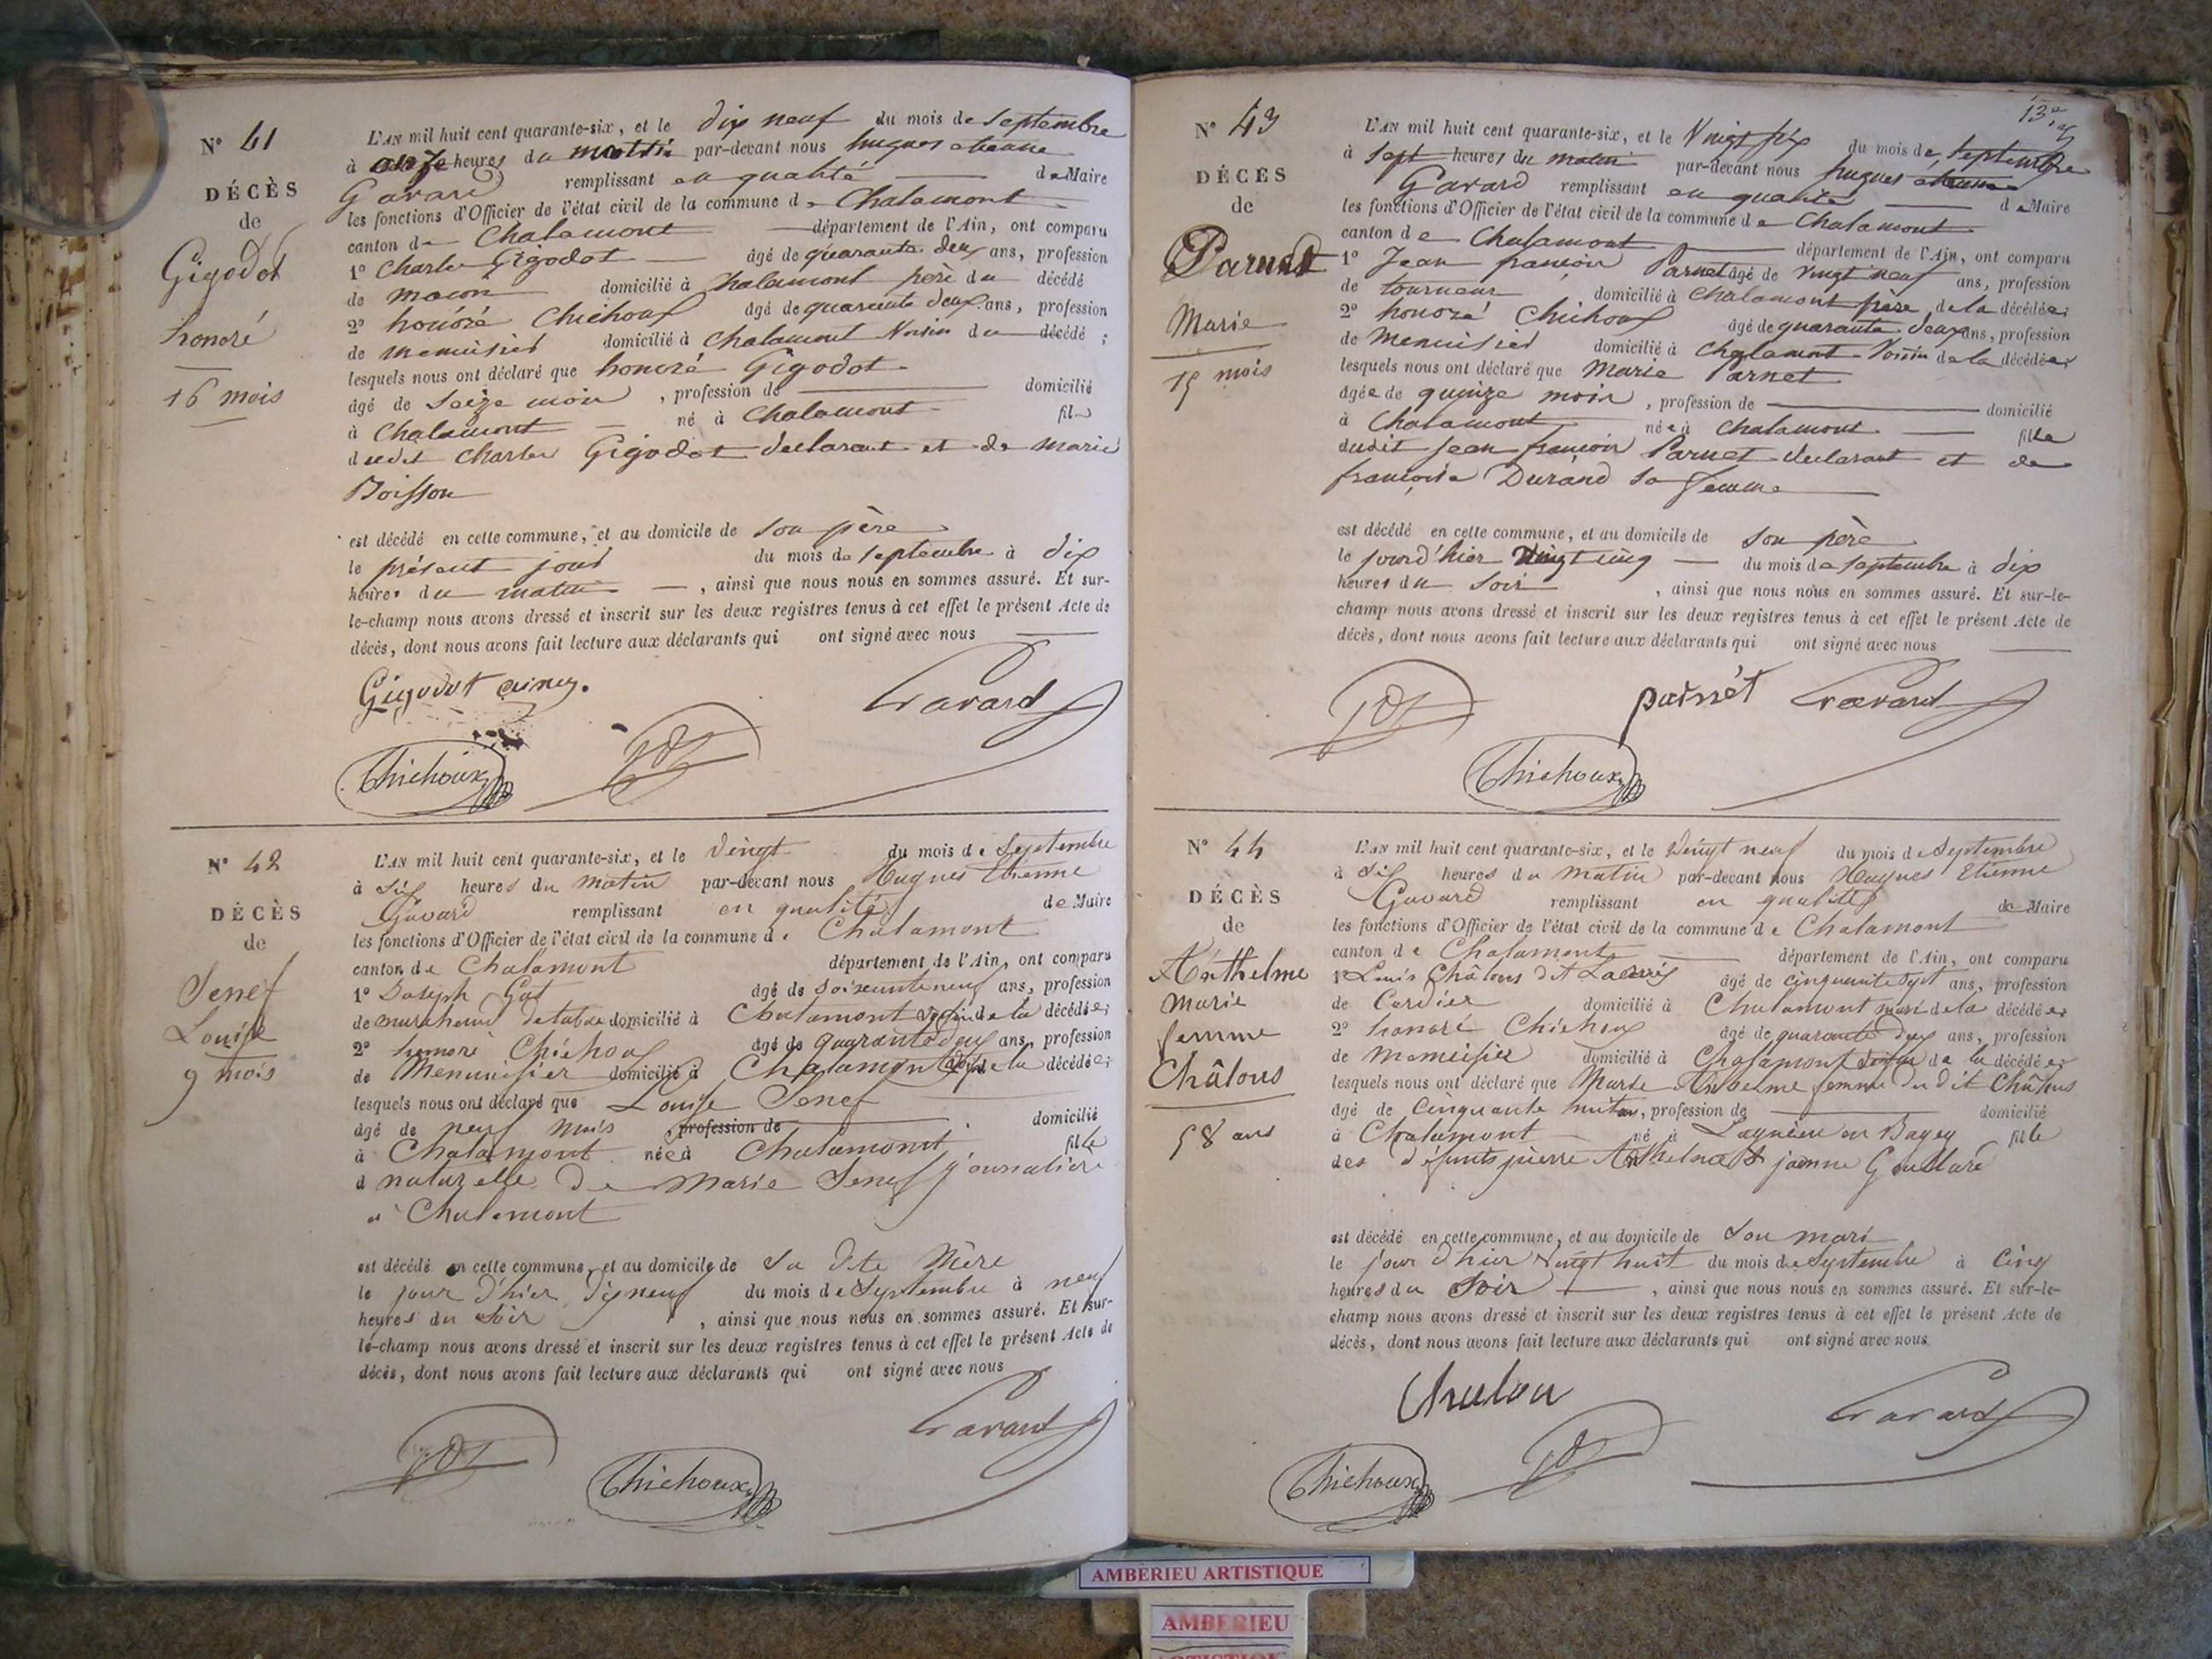 N° 41
DÉCÈS
de
Gigodot
honoré
16 mois
L'AN mil huit cent quarante-six, et le dix neuf du mois de Septembre
à onze heures du matin par-devant nous hugues etienne
Gavard remplissant en qualité de Maire
les fonctions d'Officier de l'état civil de la commune de Chalamont
canton de Chalamont département de l'Ain, ont comparu
1° Charles Gigodot âgé de quarante deux ans, profession
de macon domicilié à Chalamont père du décédé
2° honoré Chichoux âgé de quarante deux ans, profession
de menuisier domicilié à Chalamont Voisin du décédé ;
lesquels nous ont déclaré que honoré Gigodot
âgé de Seize mois , profession de domicilié
à Chalamont né à Chalamont fils
dudit Charles Gigodot declarant et de marie
Boisson
est décédé en cette commune, et au domicile de son père
le présent jour du mois de septembre à dix
heures du matin , ainsi que nous nous en sommes assuré. Et sur-
le-champ nous avons dressé et inscrit sur les deux registres tenus à cet effet le présent Acte de
décès, dont nous avons fait lecture aux déclarants qui ont signé avec nous
Gigodot
Gavard
Chichoux
N° 42
DÉCÈS
de
Senef
Louise
9 mois
L'AN mil huit cent quarante-six, et le Vingt du mois de Septembre
à six heures du matin par-devant nous Hugues Etienne
Gavard remplissant en qualité de Maire
les fonctions d'Officier de l'état civil de la commune de Chalamont
canton de Chalamont département de l'Ain, ont comparu
1° Joseph Got âgé de soixante neuf ans, profession
de marchand de tabac domicilié à Chalamont voisin de la décédée;
2° honoré Chichoux âgé de quarante deux ans, profession
de Menuisier domicilié à Chalamont de la décédée;
lesquels nous ont déclaré que Louise Senef
âgé de neuf mois , profession de domicilié
à Chalamont née à Chalamont fille
naturelle de Marie Senef journalière
à Chalamont
est décédé en cette commune, et au domicile de Sa dite Mère
le jour d'hier dix neuf du mois de Septembre à neuf
heures du Soir , ainsi que nous nous en sommes assuré. Et sur-
le-champ nous avons dressé et inscrit sur les deux registres tenus à cet effet le présent Acte de
décès, dont nous avons fait lecture aux déclarants qui ont signé avec nous
Gavard
Chichoux
N° 43
DÉCÈS
de
Parnet
Marie
15 mois
L'AN mil huit cent quarante-six, et le Vingt six du mois de Septembre
à sept heures du matin par-devant nous hugues etienne
Gavard remplissant en qualité de Maire
les fonctions d'Officier de l'état civil de la commune de Chalamont
canton de Chalamont département de l'Ain, ont comparu
1° Jean françois Parnet âgé de vingt neuf ans, profession
de tourneur domicilié à Chalamont père de la décédée;
2° honoré Chichoux âgé de quarante deux ans, profession
de Menuisier domicilié à Chalamont Voisin de la décédée;
lesquels nous ont déclaré que Marie Parnet
âgée de quinze mois , profession de domicilié
à Chalamont née à Chalamont fille
dudit jean françois Parnet declarant et de
françoise Durand sa femme
est décédé en cette commune, et au domicile de son père
le jourd'hier vingt cinq du mois de septembre à dix
heures du soir , ainsi que nous nous en sommes assuré. Et sur-le-
champ nous avons dressé et inscrit sur les deux registres tenus à cet effet le présent Acte de
décès, dont nous avons fait lecture aux déclarants qui ont signé avec nous
parnét Gavard
Chichoux
N° 44
DÉCÈS
de
Anthelme
Marie
femme
Châlons
58 ans
L'AN mil huit cent quarante-six, et le Vingt neuf du mois de Septembre
à six heures du matin par-devant nous Hugues Etienne
Gavard remplissant en qualité de Maire
les fonctions d'Officier de l'état civil de la commune de Chalamont
canton de Chalamont département de l'Ain, ont comparu
1° Louis Châlons dit âgé de cinquante sept ans, profession
de Cordier domicilié à Chalamont mari de la décédée;
2° honoré Chichoux âgé de quarante deux ans, profession
de Menuisier domicilié à Chalamont voisin de la décédée;
lesquels nous ont déclaré que Marie Anthelme femme du dit Châlons
âgé de Cinquante huit ans, profession de domicilié
à Chalamont né à en Bugey fille
des défunts pierre Anthelme & jeanne
est décédé en cette commune, et au domicile de Son mari
le jour d'hier Vingt huit du mois de Septembre à Cinq
heures du Soir , ainsi que nous nous en sommes assuré. Et sur-le-
champ nous avons dressé et inscrit sur les deux registres tenus à cet effet le présent Acte de
décès, dont nous avons fait lecture aux déclarants qui ont signé avec nous
Chalon
Gavard
Chichoux
AMBERIEU ARTISTIQUE
AMBERIEU